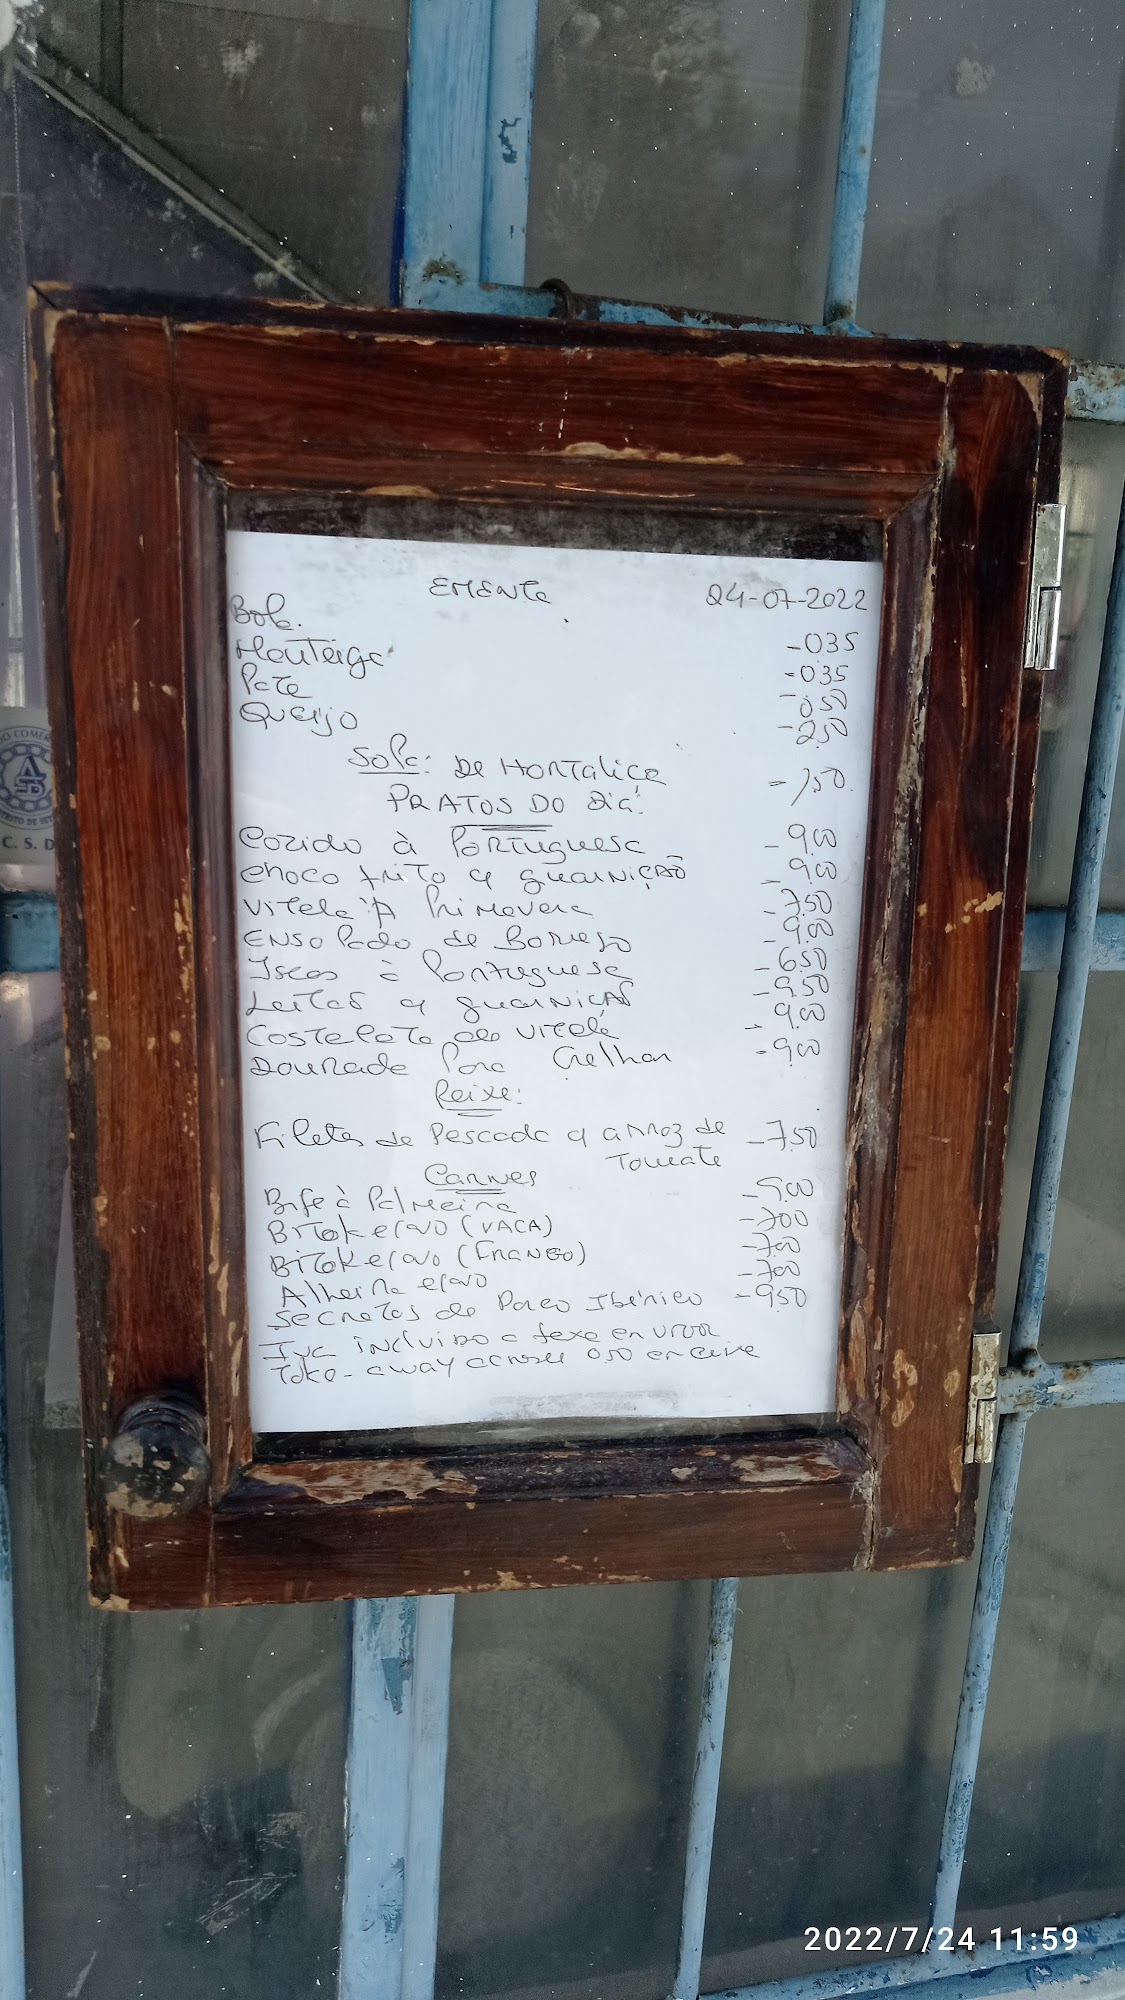 EMENTA 24-07-2022
Bola. -035
Manteiga -035
Pate -050
Queijo -250
Sopa: DE HORTALIÇA -1,50.
PRATOS DO DIA:
Cozido à Portuguesa -900
Choco frito c/ guarnição -900
Vitela À Primavera -750
Ensopado de Borrego -900
Iscas à Portuguesa -650
Leitão c/ guarnição -950
Costeleta de vitela -900
Dourada Para Grelhar -900
Peixe:
Filetes de Pescada c/ arroz de -7,50
Tomate
Carnes
Bife à Palmeira -900
Bitok c/ovo (VACA) -700
Bitok c/ovo (FRANGO) -700
Alheira c/ovo -700
Secretos de Porco Ibérico -950
Iva incluido a taxa em vigor
Take-away acresce 050 en caixa
DO COMER
C. S. D
2022/7/24 11:59